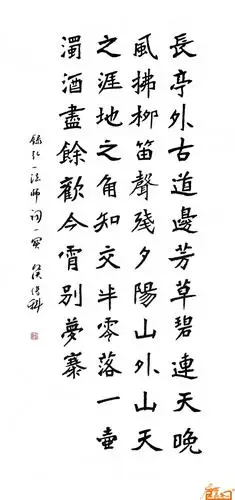 長亭外古道邊芳草碧連天晚
風拂柳笛聲殘夕陽山外山天
之涯地之角知交半零落一壺
濁酒盡餘歡今霄別夢寒
錄弘一法師詞一